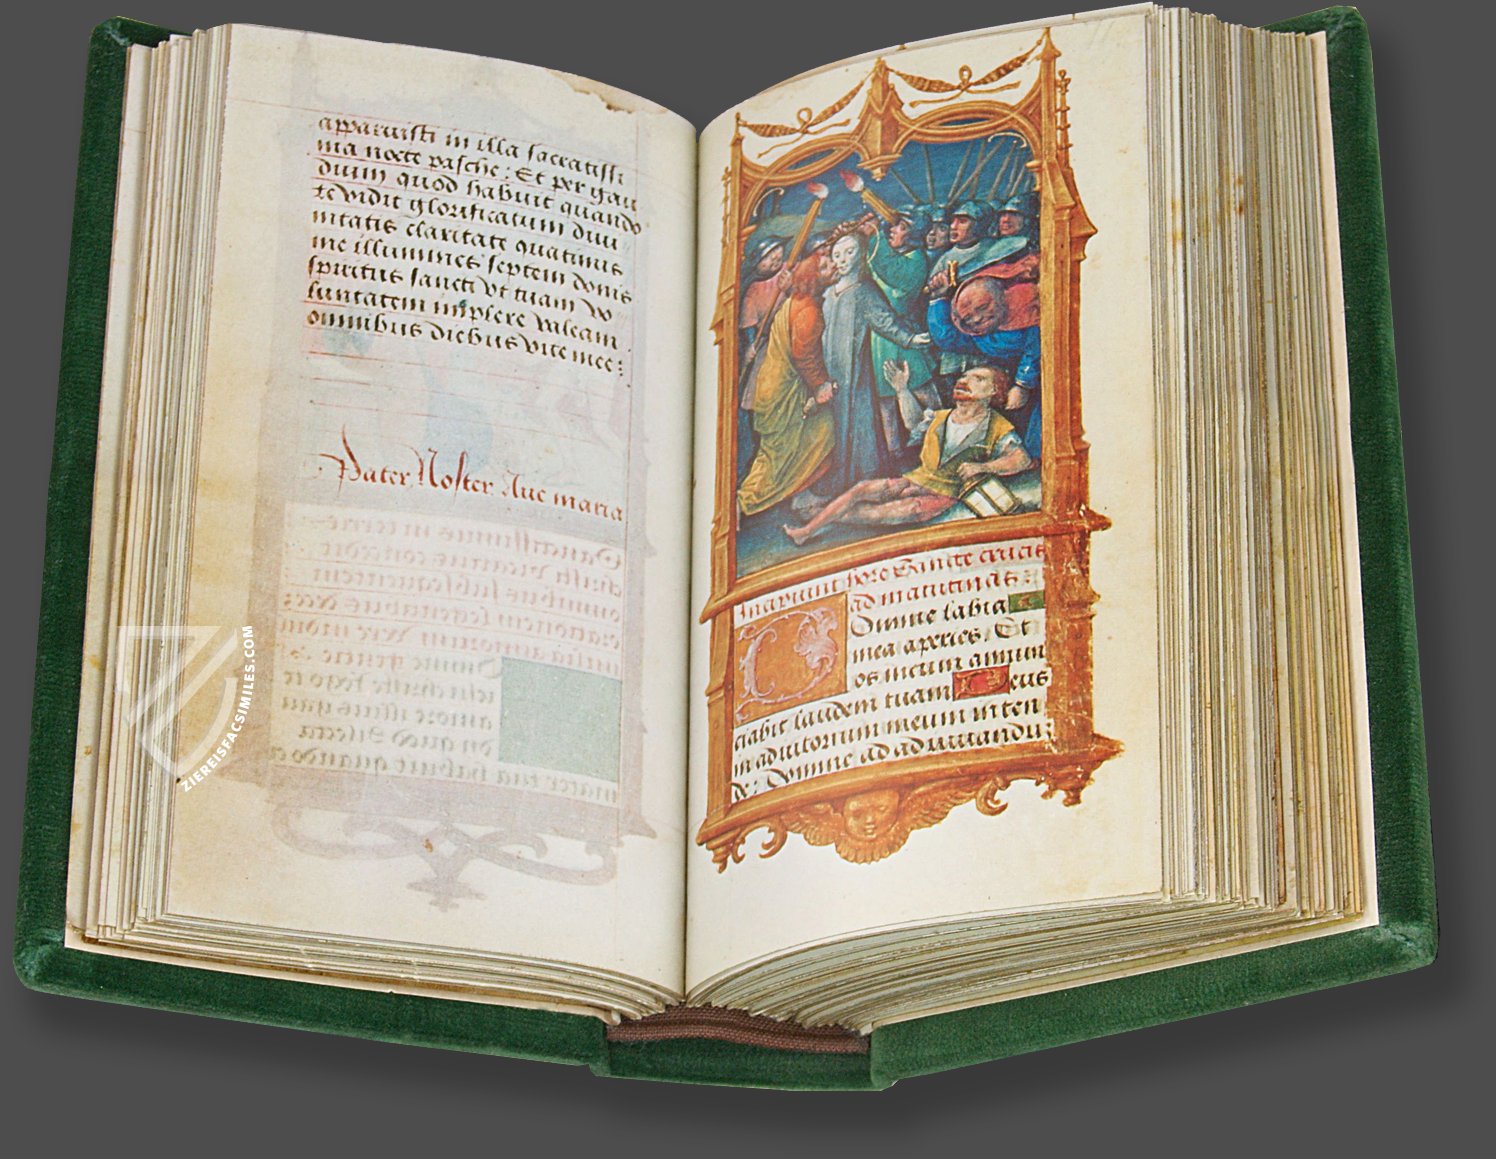 apparuisti in illa sacratissi
ma nocte pasche : Et per gau
dium quod habuit quando
te vidit glorificatum diui
nitatis claritate quatinus
me illumines septem donis
spiritus sancti vt tuam vo
luntatem implere valeam
omnibus diebus vite mee :
Pater Noster Aue maria
Incipiunt hore Sancte crucis
ad matutinas :
Domine labia
mea aperies Et
os meum annun
ciabit laudem tuam Deus
in adiutorium meum inten
de : Domine ad adiuuandu :
ZIEREISFACSIMILES.COM